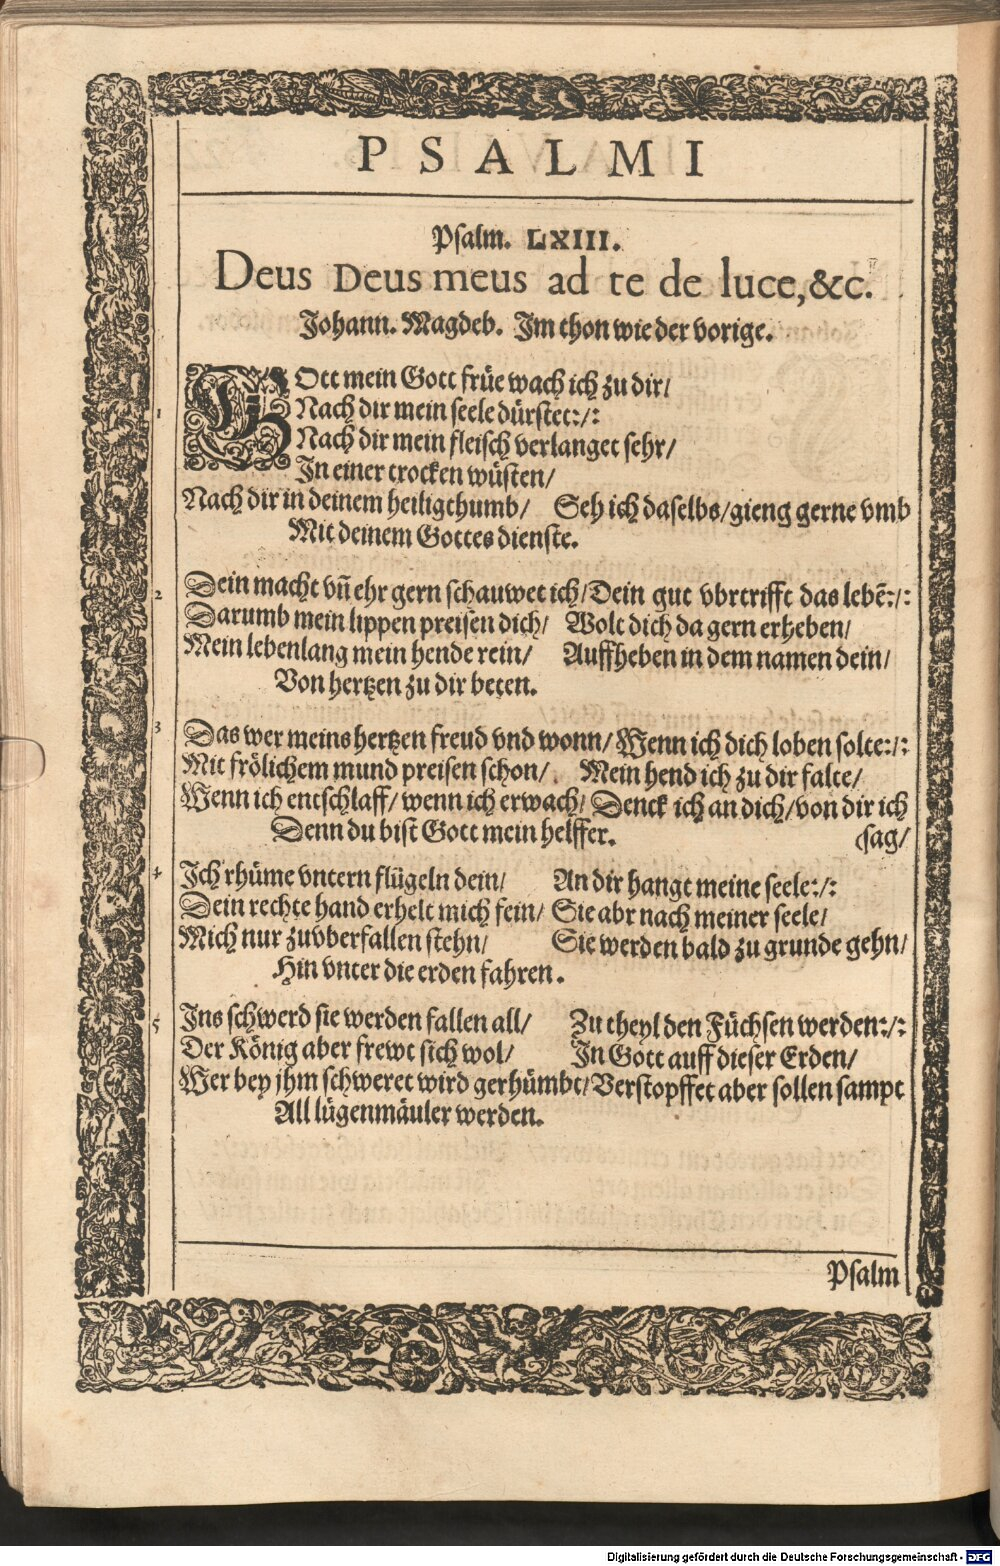 PSALMI
Psalm. LXIII.
Deus Deus meus ad te de luce, &c.
Johann. Magdeb. Im thon wie der vorige.
GOtt mein Gott früe wach ich zu dir/
1 Nach dir mein seele dürstet:/:
Nach dir mein fleisch verlanget sehr/
In einer trocken wüsten/
Nach dir in deinem heiligthumb/ Seh ich daselbs/gieng gerne vmb
Mit deinem Gottes dienste.
2 Dein macht vñ ehr gern schauwet ich/Dein gut vbrtrifft das lebẽ:/:
Darumb mein lippen preisen dich/ Wolt dich da gern erheben/
Mein lebenlang mein hende rein/ Auffheben in dem namen dein/
Von hertzen zu dir beten.
3 Das wer meins hertzen freud vnd wonn/Wenn ich dich loben solte:/:
Mit frölichem mund preisen schon/. Mein hend ich zu dir falte/
Wenn ich entschlaff/ wenn ich erwach/ Denck ich an dich/von dir ich
Denn du bist Gott mein helffer. (sag/
4 Ich rhüme vntern flügeln dein/ An dir hangt meine seele:/:
Dein rechte hand erhelt mich fein/ Sie abr nach meiner seele/
Mich nur zuvberfallen stehn/ Sie werden bald zu grunde gehn/
Hin vnter die erden fahren.
5 Ins schwerd sie werden fallen all/ Zu theyl den Füchsen werden:/:
Der König aber frewt sich wol/ In Gott auff dieser Erden/
Wer bey jhm schweret wird gerhümbt/Verstopffet aber sollen sampt
All lügenmäuler werden.
Psalm
Digitalisierung gefördert durch die Deutsche Forschungsgemeinschaft - DFG